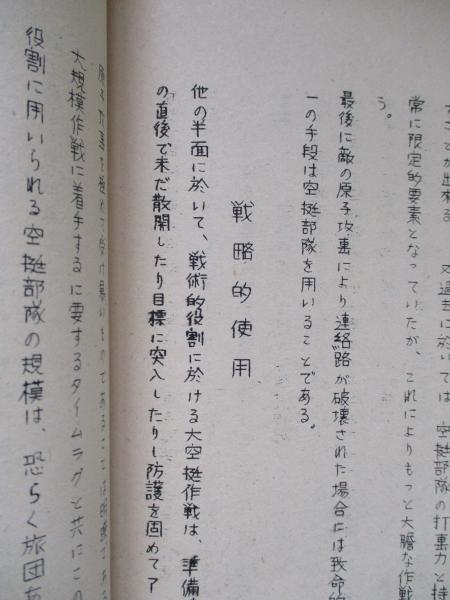 することが出来る 又過去に於いては 空挺部隊の打撃力と持
常に限定的要素となっていたが、これによりもっと大膽な作戦
う。
最後に敵の原子攻裏により連絡路が破壊された場合には致命的
一の手段は空挺部隊を用いることである。
戦略的使用
他の半面に於いて、戦術的役割に於ける大空挺作戦は、準備
の直後で未だ散開したり目標に突入したりし防護を固めて了
原子攻裏を極めて受け易いものであることは明瞭である
大規模作戦に着手するに要するタイムラグと共にこの
役割に用いられる空挺部隊の規模は、恐らく旅団